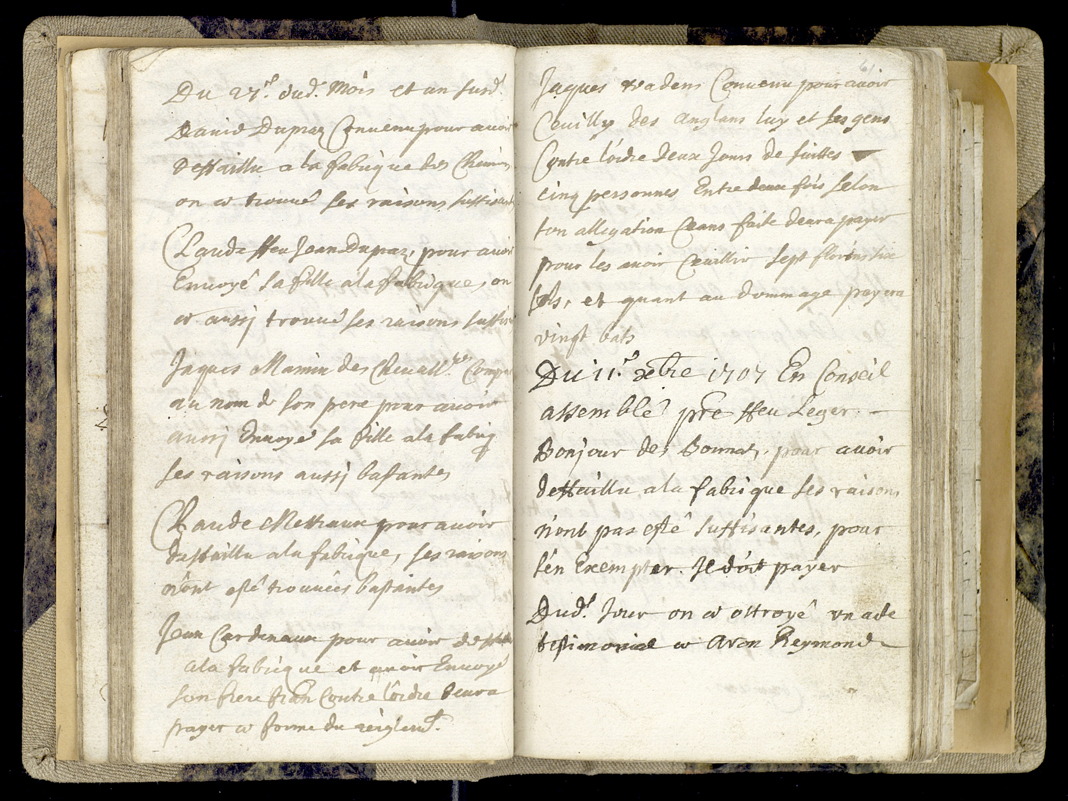 Du 27.e dud. Mois et an susd.
David Dupraz Convenu pour avoir
deffailliu a la fabrique des Chemins
on a trouvé ses raisons suffisant
Claude ffeu Jean Dupraz, pour avoir
Envoyé sa fille a la fabrique, on
a aussj trouvé ses raisons suffis
Jaques Mamin des Chevall.res Comp
au nom de son pere pour avoir
aussj Envoyé sa fille a la fabriq
ses raisons aussj bastantes
Claude Methaux pour avoir
deffailliu a la fabrique, ses raisons
n'ont esté trouvées bastantes
Jean Cardinaux pour avoir
a la fabrique et avoir Envoyé
son frere Contre l'ordre devra
payer a forme du reiglemt.
61
Jaques Convenu pour avoir
Ceuilly des anglans luy et ses gens
Contre l'ordre deux Jours de suittes
cinq personnes Entre deux fois selon
son allegation Ceans faite devra payer
pour les avoir Ceuillir sept florins six
sols, et quant au dommage payera
vingt bats
Du 11.e xbre 1707 En Conseil
assemblé pre ffeu Leger
Bonjour des Bonnaz, pour avoir
deffailliu a la fabrique ses raisons
n'ont pas esté suffisantes, pour
s'en Exempter. Il doit payer
Dud. Jour on a ottroyé un acte
testimonial a Aron Reymond